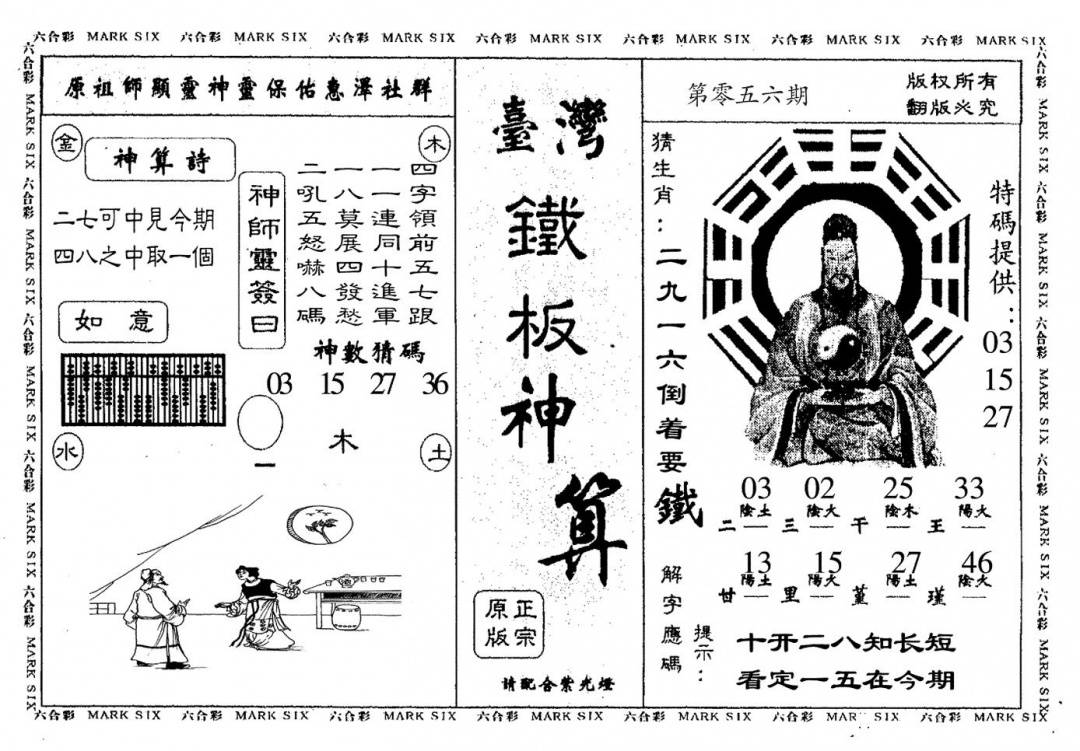 六合彩 MARK SIX 六合彩 MARK SIX 六合彩 MARK SIX 六合彩 MARK SIX 六合彩 MARK SIX 六合彩 MARK SIX 六合彩 MARK SIX
原祖師顯靈神靈保佑惠澤社群
金
木
神算詩
二七可中見今期
四八之中取一個
如意
神師靈簽曰
四字領前五七跟
一一連同十進軍
一八莫展四發愁
二吼五怒嚇八碼
神數猜碼
03 15 27 36
木
一
水
土
臺灣
鐵板神算
正宗
原版
請配合紫光燈
第零五六期
版权所有
翻版必究
猜生肖：二九一六倒着要鐵
特碼提供：
03
15
27
03 02 25 33
陰土 陰火 陰木 陽火
二 三 干 王
13 15 27 46
陽土 陽火 陽土 陰火
廿 里 堇 瑾
解字應碼
提示：
十开二八知长短
看定一五在今期
六合彩 MARK SIX 六合彩 MARK SIX 六合彩 MARK SIX 六合彩 MARK SIX 六合彩 MARK SIX
六合彩 MARK SIX 六合彩 MARK SIX 六合彩 MARK SIX 六合彩 MARK SIX 六合彩 MARK SIX
六合彩 MARK SIX 六合彩 MARK SIX 六合彩 MARK SIX 六合彩 MARK SIX 六合彩 MARK SIX 六合彩 MARK SIX 六合彩 MARK SIX